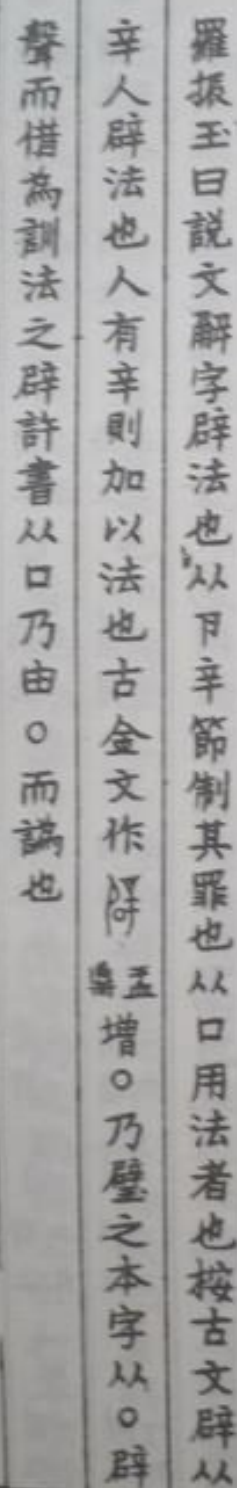 羅振玉曰説文解字辟法也从卩辛節制其罪也从口用法者也按古文辟从
辛人辟法也人有辛則加以法也古金文作 增○乃璧之本字从○辟
聲而借為訓法之辟許書从口乃由○而譌也